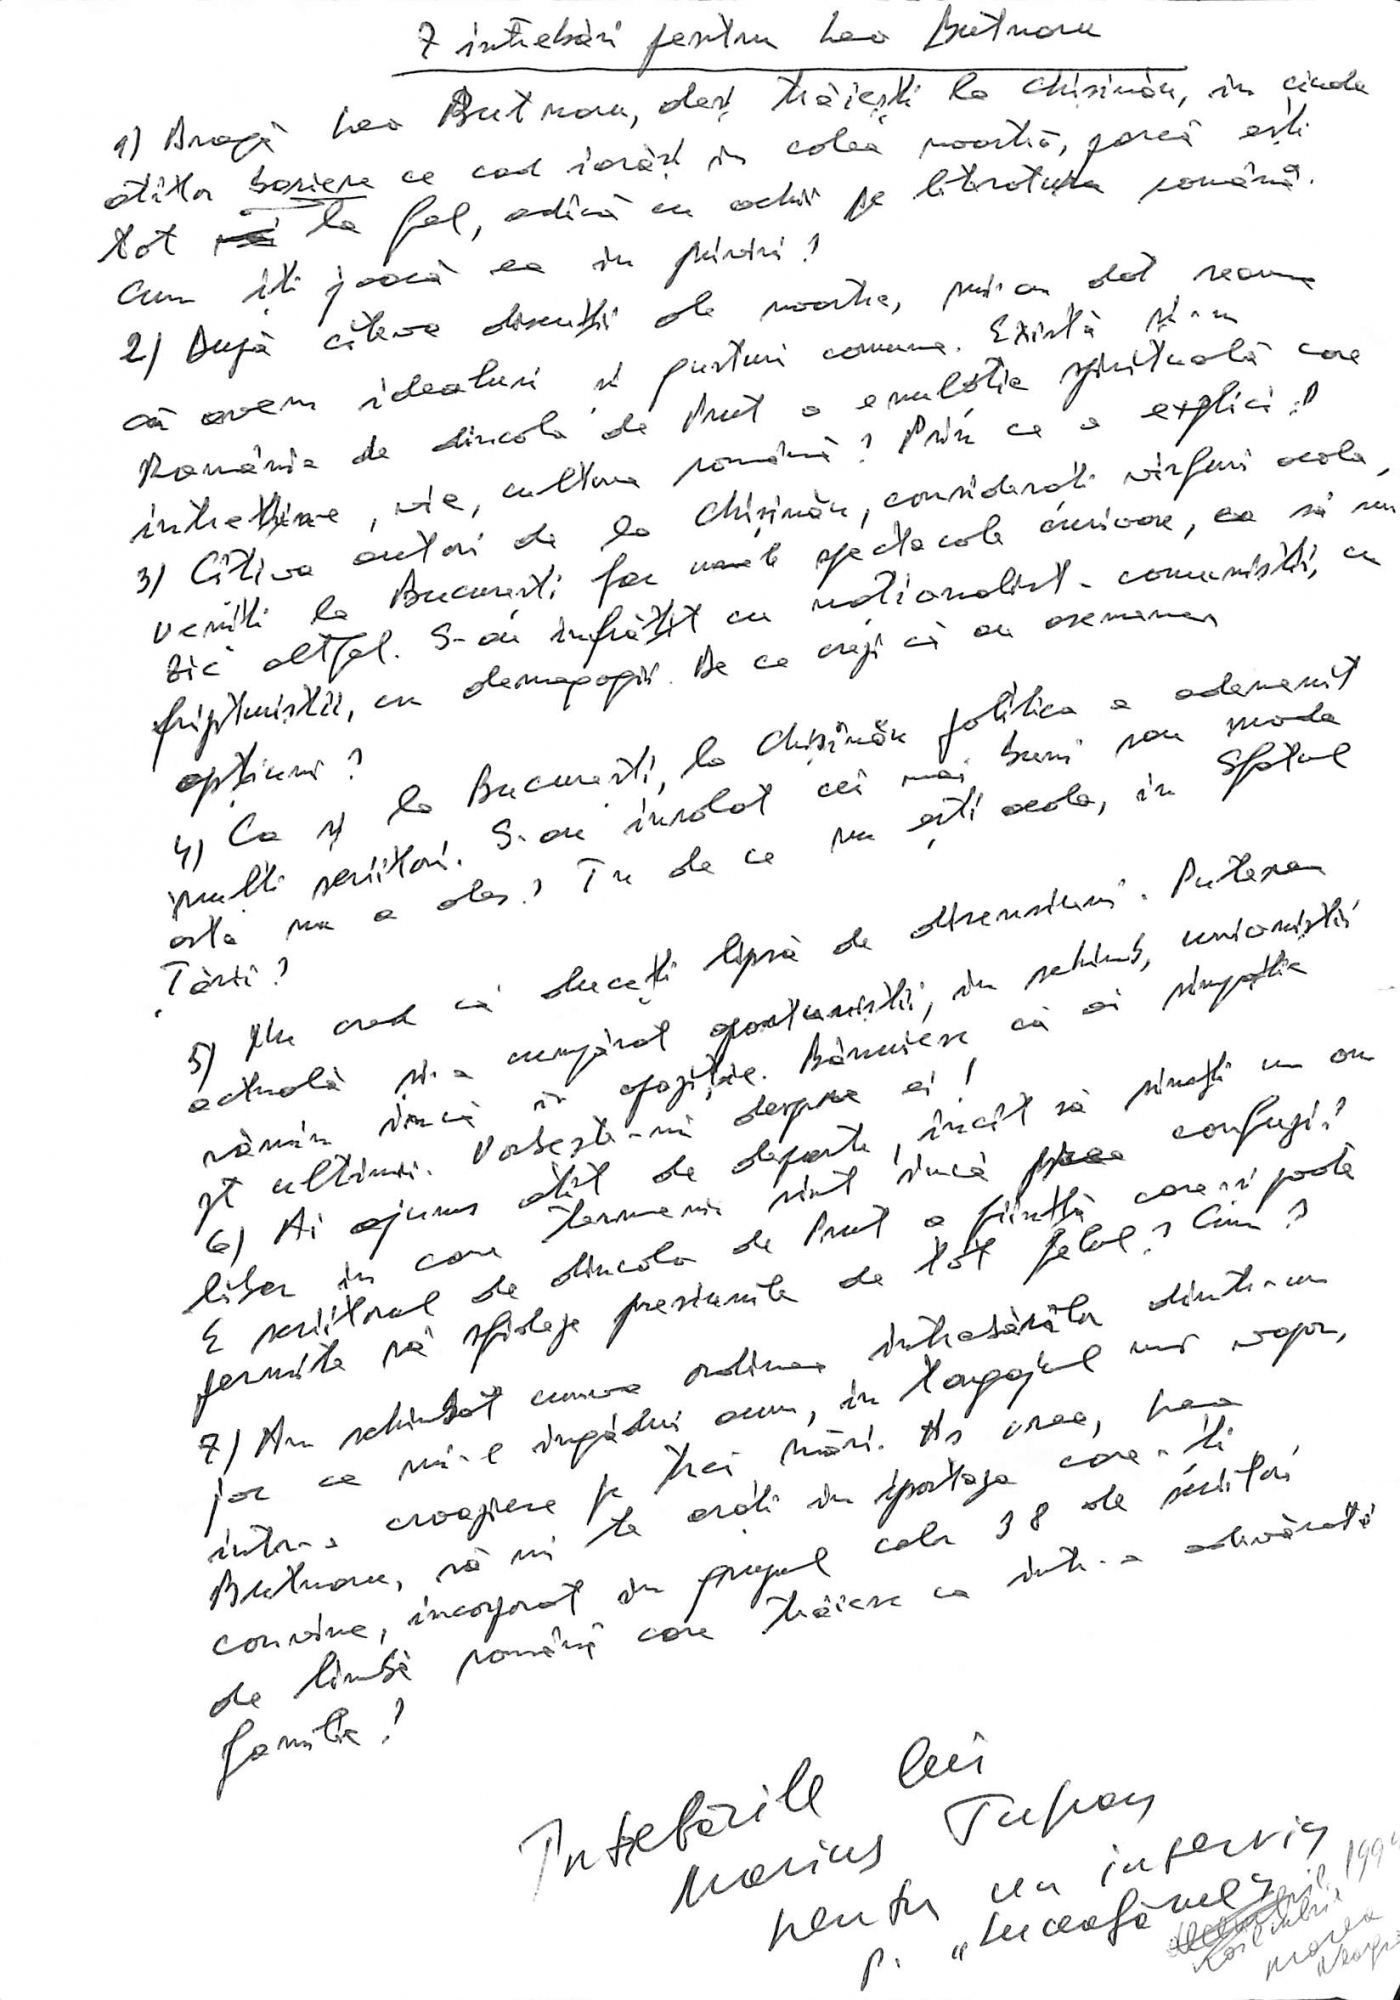 7 întrebări pentru Leo Butnaru
1) Dragă Leo Butnaru, deși trăiești la Chișinău, în ciuda
atîtor bariere ce cad iarăși în calea noastră, parcă ești
tot la fel, adică cu ochii pe literatura română.
Cum îți joacă ea în priviri?
2) După cîteva discuții de-ale noastre, mi-am dat seama
că avem idealuri și gusturi comune. Există și-n
România de dincolo de Prut o emulație spirituală care
întreține, vie, cultura română? Prin ce o explici?
3) Cîțiva autori de la Chișinău, considerați vîrfuri acolo,
veniți la București fac spectacole curioase, ca să nu
zic altfel. S-au înfrățit cu naționalist-comuniștii, cu
fripturiștii, cu demagogii. De ce crezi că au asemenea
opțiuni?
4) Ca și la București, la Chișinău politica a ademenit
mulți scriitori. S-au înrolat cei mai buni sau moda
asta nu a ales? Tu de ce nu ești acolo, în Sfatul
Țării?
5) Nu cred că duceți lipsă de disensiuni. Puterea
actuală și-a cumpărat oportuniștii, în schimb, unioniștii
rămîn încă în opoziție. Bănuiesc că ai simpatie
pt ultimii. Vorbește-mi despre ei!
6) Ai ajuns atît de departe, încît să simți un om
liber în care termenii sînt încă confuzi?
E scriitorul de dincolo de Prut o ființă care-și poate
permite să sfideze presiunile de tot felul? Cum?
7) Am schimbat cumva ordinea întrebărilor dintr-un
joc ce mi-l îngădui acum, în tangajul unui vapor,
într-o croazieră pe trei mări. Aș vrea, Leo
Butnaru, să mi te arăți în ipostaza care-ți
convine, incorporat în grupul celor 38 de scriitori
de limbă română care trăiesc ca într-o adevărată
familie?
Întrebările lui
Marius Tupan
pentru un interviu
p. „Luceafărul”
1994
Marea
Neagră